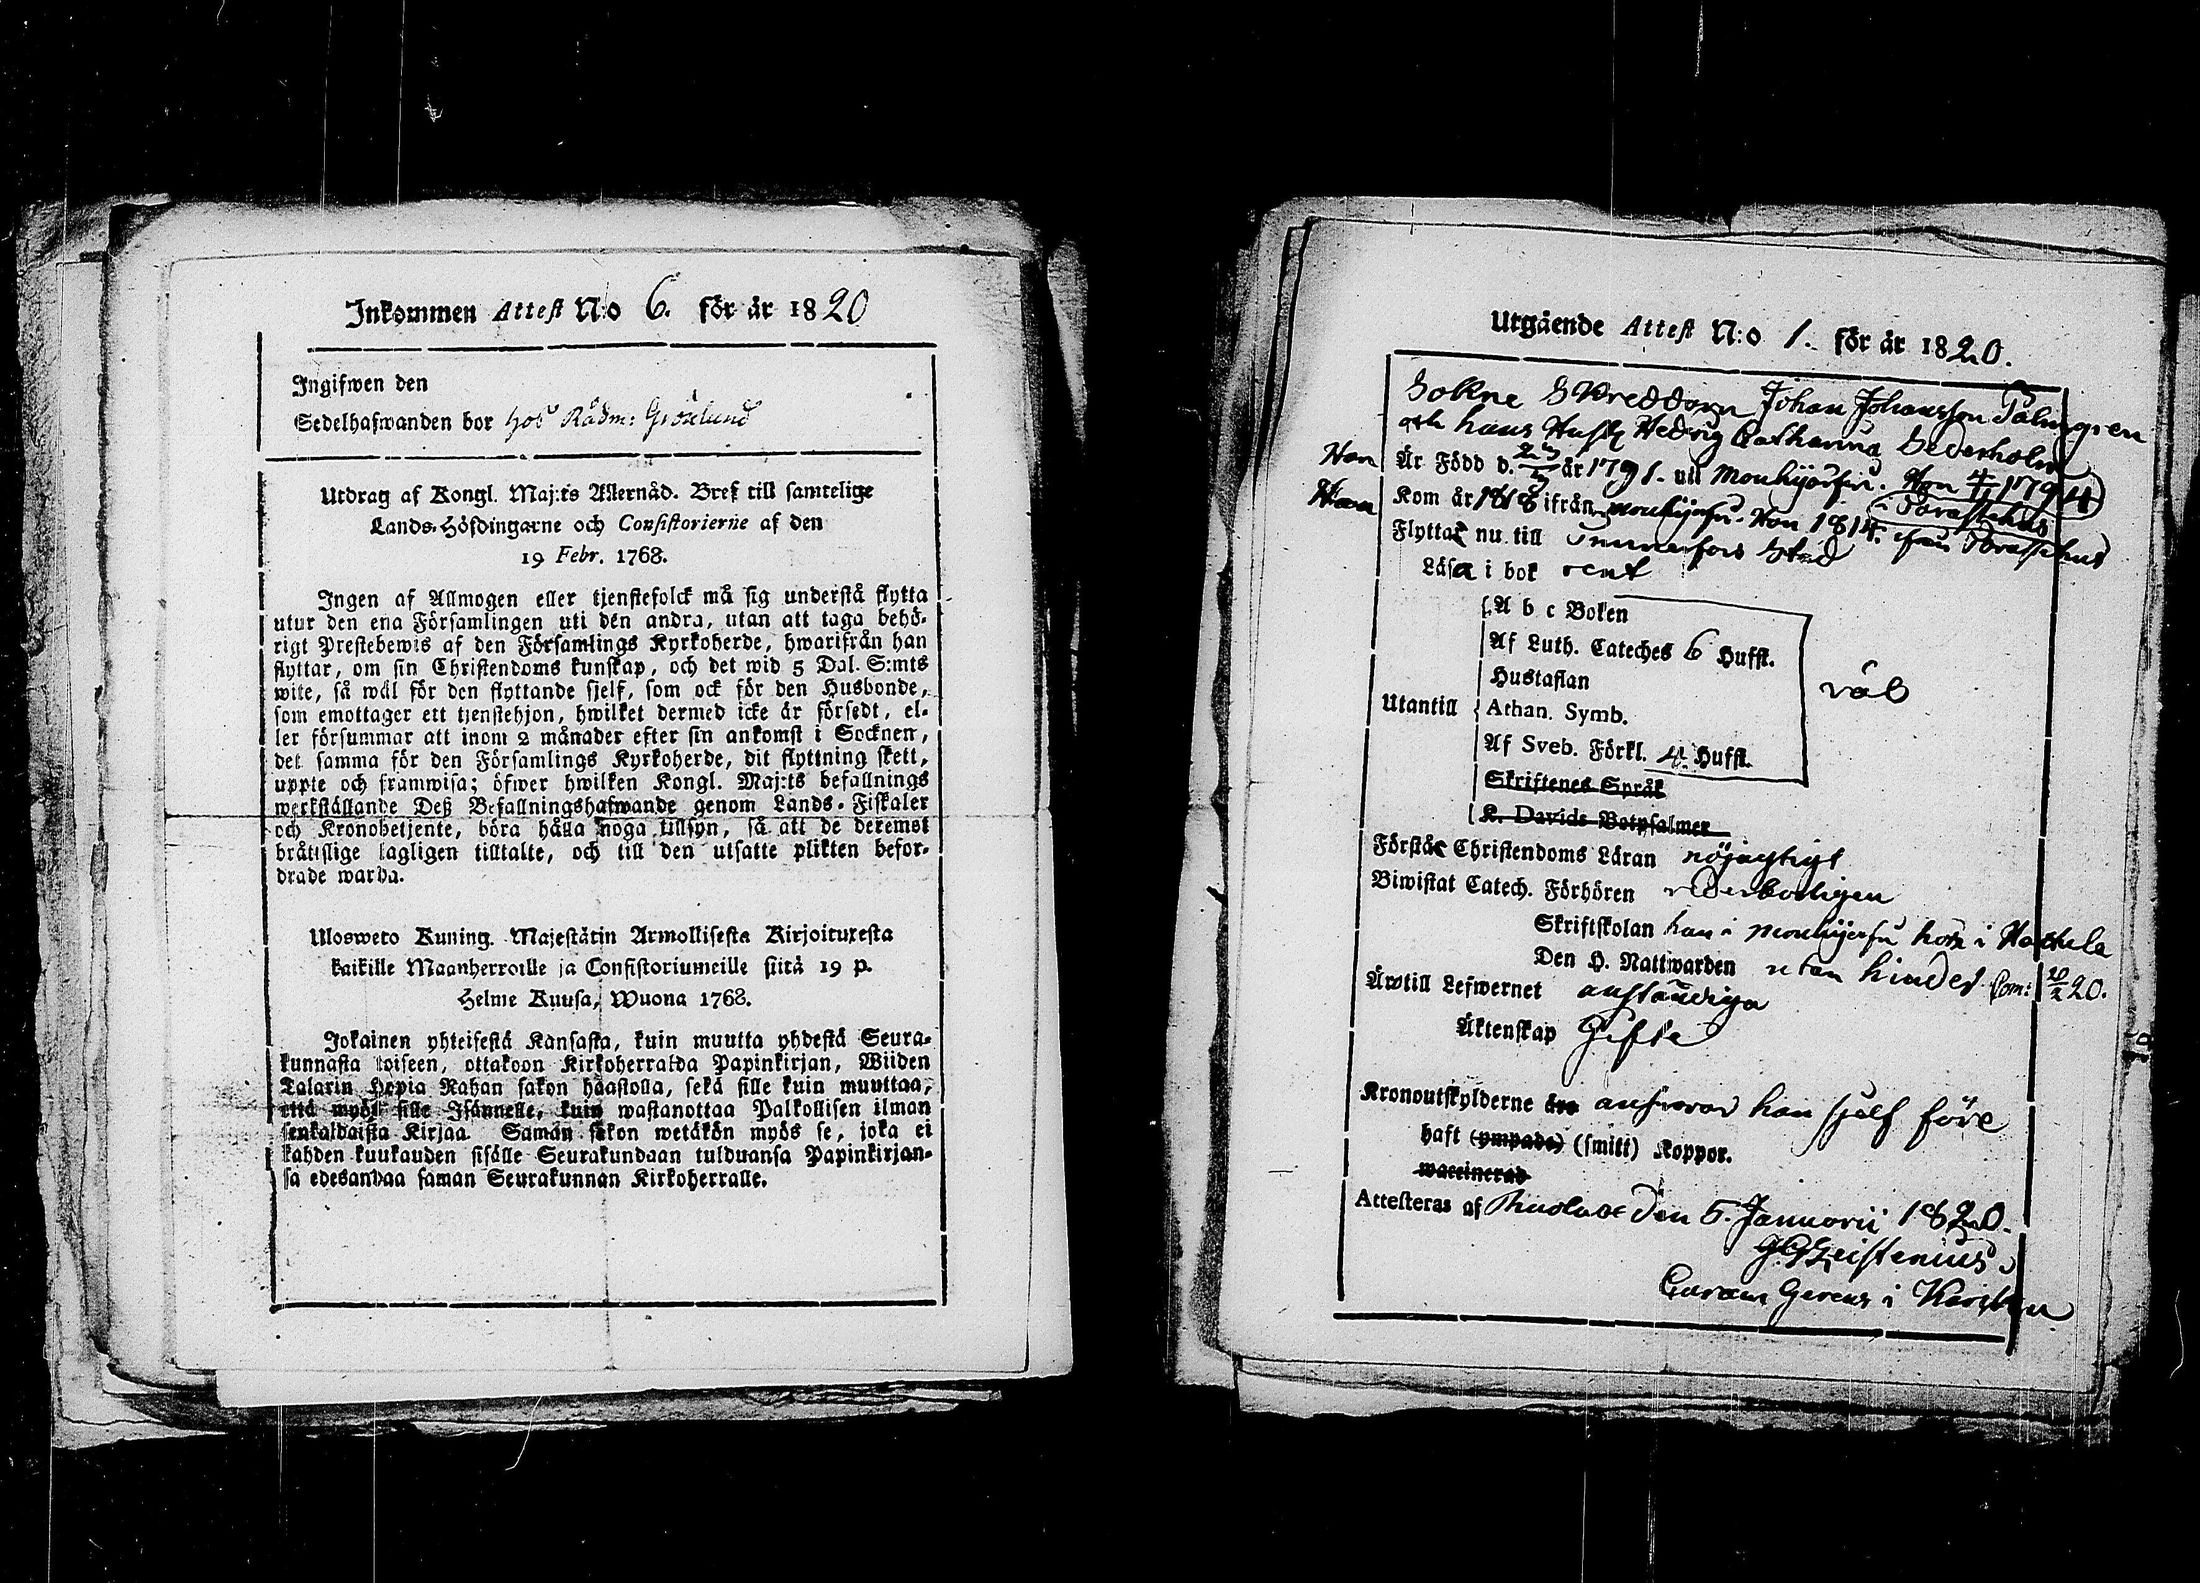 Inkommen Attest N:o 6. för år 1820
Ingifwen den
Sedelhafwanden bor hos Rådm: Grönlund
Utdrag af Kongl. Maj:ts Allernåd. Bref till samtelige
Lands-Höfdingarne och Consistorierne af den
19 Febr. 1768.
Ingen af Allmogen eller tjenstefolck må sig understå flytta
utur den ena Församlingen uti den andra, utan att taga behö-
rigt Prestebewis af den Församlings Kyrkoherde, hwarifrån han
flyttar, om sin Christendoms kunskap, och det wid 5 Dal. S:mts
wite, så wäl för den flyttande sjelf, som ock för den Husbonde,
som emottager ett tjenstehjon, hwilket dermed icke är försedt, el-
ler försummar att inom 2 månader efter sin ankomst i Socknen,
det samma för den Församlings Kyrkoherde, dit flyttning skett,
uppte och framwisa; öfwer hwilken Kongl. Maj:ts befallnings
werkställande Deß Befallningshafwande genom Lands-Fiskaler
och Kronobetjente, böra hålla noga tillsyn, så att de deremot
bråtslige lagligen tilltalte, och till den utsatte plikten befor-
drade warda.
Ulosweto Kuning. Majestätin Armollisesta Kirjoituxesta
kaikille Maanherroille ja Consistoriumeille siitä 19 p.
Helme Kuusa, Wuona 1768.
Jokainen yhteisestä Kansasta, kuin muutta yhdestä Seura-
kunnasta toiseen, ottakoon Kirkoherralda Papinkirjan, Wiiden
Talarin Hopia Rahan sakon haastolla, sekä sille kuin muuttaa,
että myös sille Isännelle, kuin wastanottaa Palkollisen ilman
senkaldaista Kirjaa. Saman sakon wetäkön myös se, joka ei
kahden kuukauden sisälle Seurakundaan tulduansa Papinkirjan-
sa edesandaa saman Seurakunnan Kirkoherralle.
Utgående Attest N:o 1. för år 1820.
Sokne Skreddarn Johan Johansson Palmgren
och hans Hustr Hedvig Catharina Sederholm
Han Är Född d. år 1791. uti Mouhijärfvi. Hon 4/ 1794
i Tavastehus
Han Kom år 1818 ifrån Mouhijerfvi. Hon 1814. ifrån Tavastehus
Flyttar nu till Tammerfors Stad
Läsa i bok rent
A b c Boken
Af Luth. Cateches 6 Hufst.
Hustaflan
Utantill Athan. Symb. väl
Af Sveb. Förkl. 4 Hufst.
Skriftenes Språk
K. Davids Botpsalmer
Förstå Christendoms Läran nöjagtigt
Biwistat Catech. Förhören vederbörligen
Skriftskolan han i Mouhijerfvi hon i Hattula
Den H. Nattwarden utan hinder Com: 20.
Äwtill Lefwernet anständiga
Äktenskap Gifta
Kronoutskylderne äro ansvarar han sjelf före
haft (ympade) (smitt) Koppor.
waccinerad
Attesteras af den 5. Januarii 1820.